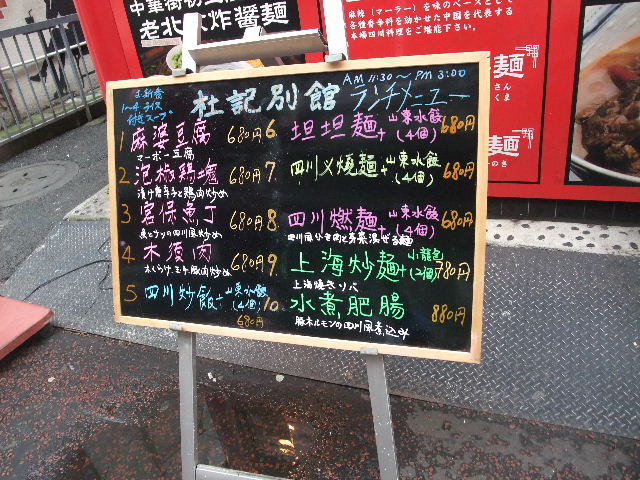 中華街
老北 炸醤麺
麻辣（マーラー）を味のベースとして
各種香辛料を効かせた中国を代表する
本場四川料理をご堪能下さい。
麺
さん
くま
麺
AM 11:30～PM 3:00
杜記別館 ランチメニュー
1 麻婆豆腐 680円
マーボー豆腐
2 泡椒鶏塊 680円
漬け唐辛子と鶏肉炒め
3 宮保魚丁 680円
魚とナッツの四川風炒め
4 木須肉 680円
木くらげ、玉子、豚肉炒め
5 四川炒飯+山東水餃(4個)
680円
6. 坦坦麺+山東水餃(4個) 680円
7. 四川义焼麺+山東水餃(4個) 680円
8. 四川燃麺+山東水餃(4個) 680円
9. 上海炒麺+小龍包(2個) 780円
上海焼きソバ
10. 水煮肥腸 880円
豚ホルモンの四川風煮込み